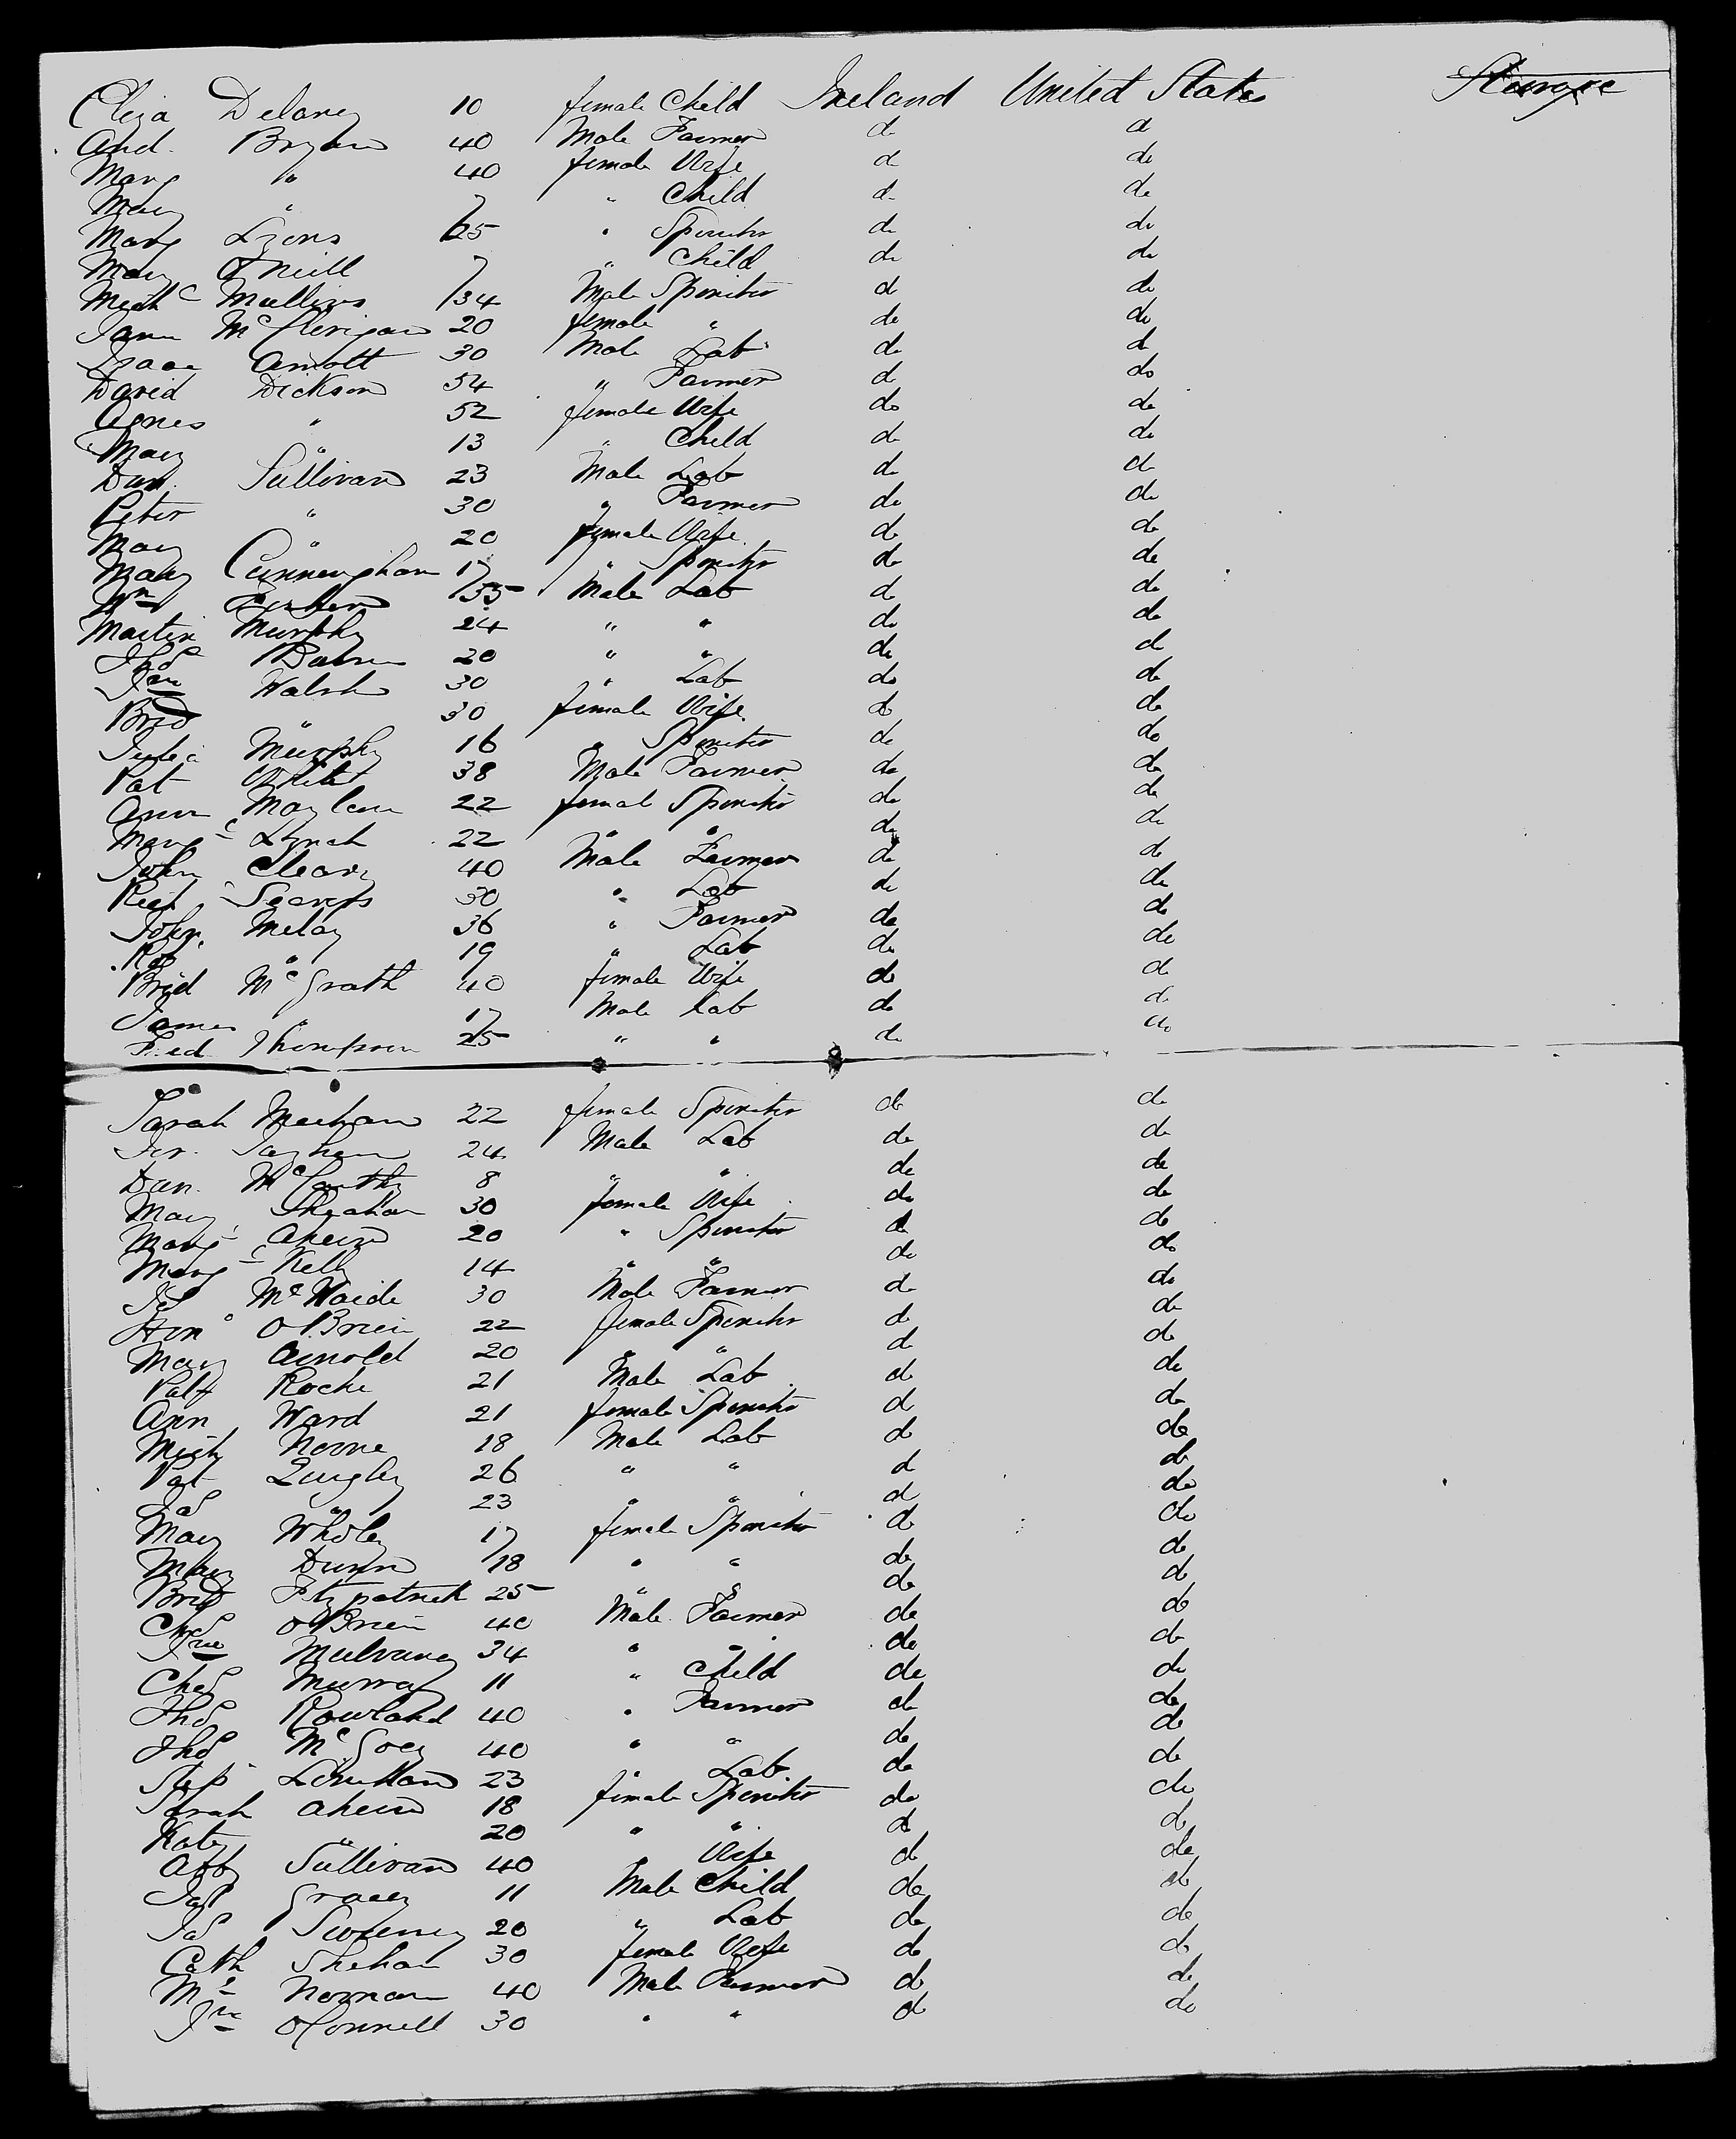 Eliza Delaney 10 female Child Ireland United States Steerage
And. Bryan 40 Male Farmer do do
Marg " 40 female Wife do do
Mary " 7 " Child do do
Marg Lyons 25 " Spinster do do
Mary O'Neill 7 " Child do do
Mich Mullins 34 Male Spinster do do
Jane 20 female " do do
Isaac Arnott 30 Male Lab do do
David Dickson 54 " Farmer do do
Agnes " 52 female Wife do do
Mary " 13 " Child do do
Dan. Sullivan 23 Male Lab do do
Peter " 30 " Farmer do do
Mary " 20 female Wife do do
Mary Cunningham 17 " Spinster do do
Wm 35 Male Lab do do
Martin Murphy 24 " " do do
Thos 20 " " do do
Jno Walsh 30 " Lab do do
Brid " 30 female Wife do do
Julia Murphy 16 " Spinster do do
Pat White 38 Male Farmer do do
Ann 22 female Spinster do do
Margt Lynch 22 " " do do
John Cleary 40 Male Farmer do do
Rich 30 " Lab do do
John Melay 36 " Farmer do do
" 19 " Lab do do
Brid McGrath 40 female Wife do do
James " 17 Male Lab do do
Fred Thompson 25 " " do do
Sarah Meehan 22 female Spinster do do
Jer. 24 Male Lab do do
Dan. McCarthy 8 " " do do
Mary Sheahan 30 female Wife do do
Marg Ahern 20 " Spinster do do
Marg Kelly 14 " " do do
Jas McWaide 30 Male Farmer do do
Hono O'Brien 22 female Spinster do do
Mary Arnold 20 " " do do
Patk Roche 21 Male Lab do do
Ann Ward 21 female Spinster do do
Mich Noone 18 Male Lab do do
Pat Quigley 26 " " do do
Jas " 23 " " do do
Mary Wholey 17 female Spinster do do
Mary Dunn 18 " " do do
Brid Fitzpatrick 25 " " do do
Chas O'Brien 40 Male Farmer do do
Jno Mulvaney 34 " " do do
Chas Murray 11 " Child do do
Thos Rowland 40 " Farmer do do
Thos McGoey 40 " " do do
Step Lenihan 23 " Lab do do
Sarah Ahern 18 female Spinster do do
Kate " 20 " " do do
Abby Sullivan 40 " Wife do do
Jas Gracey 11 Male Child do do
Jas Sweeney 20 " Lab do do
Cath Shehan 30 female Wife do do
Noonan 40 Male Farmer do do
Jno O'Connell 30 " " do do